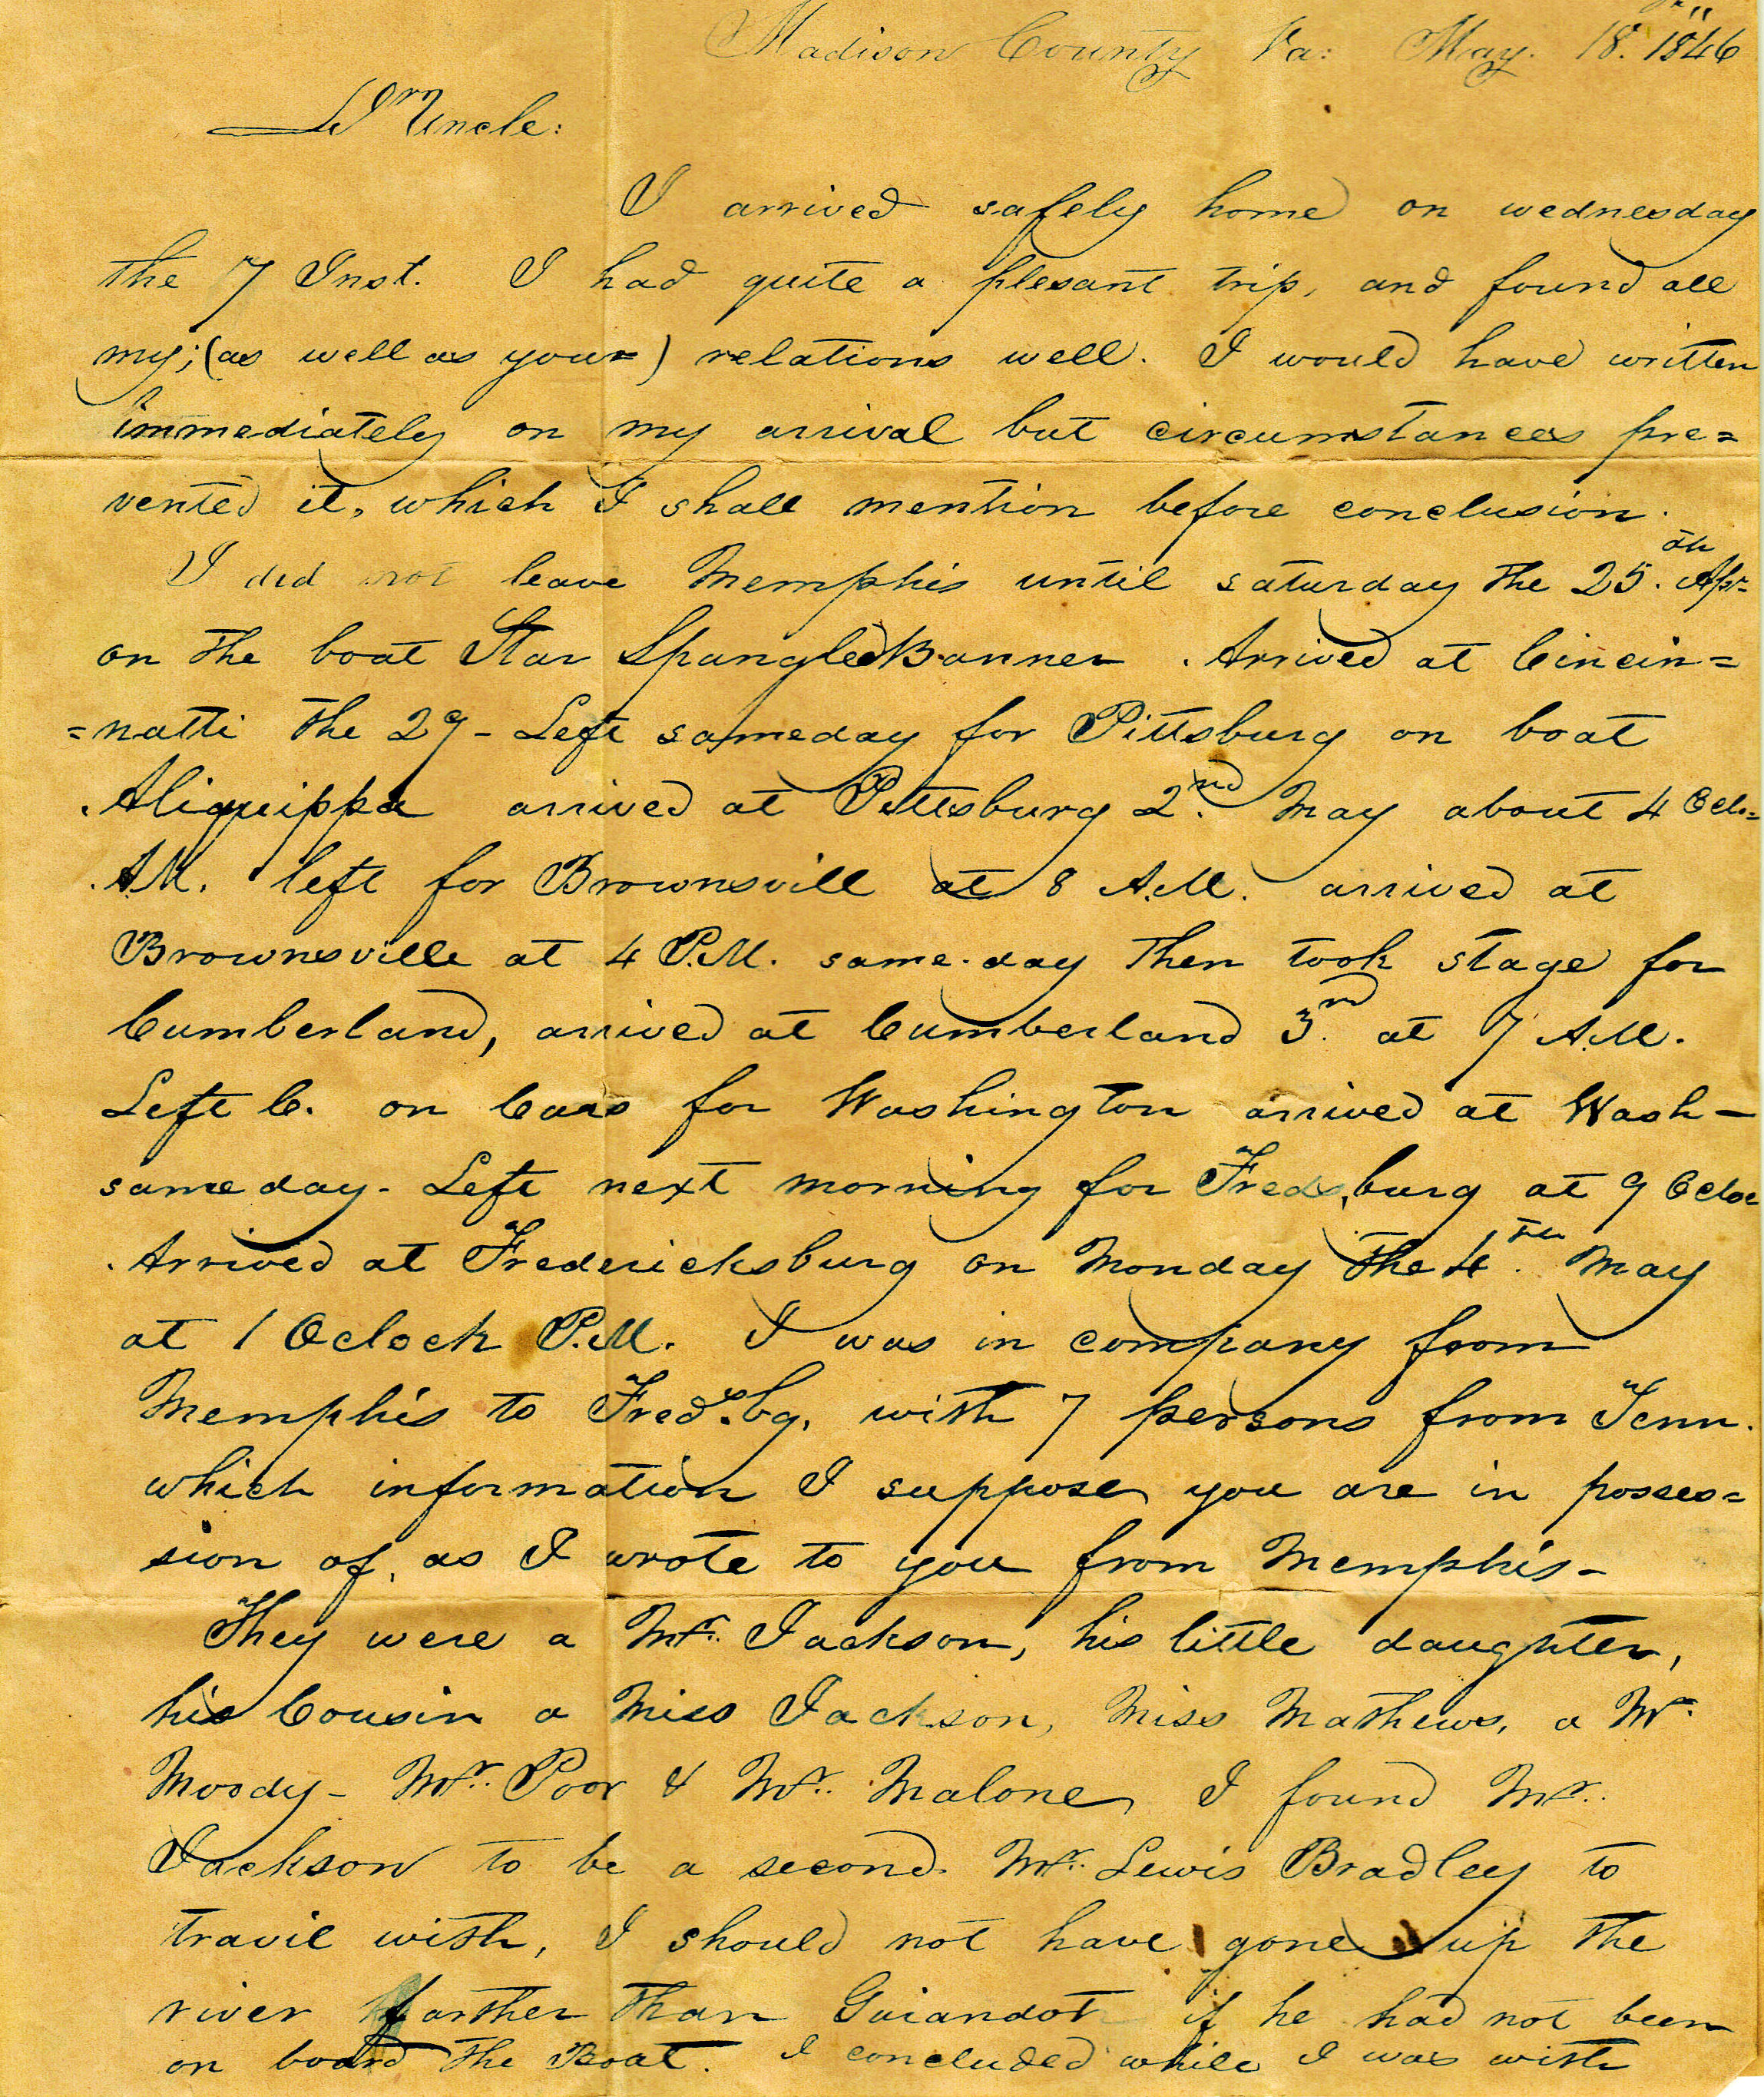 Madison County Va: May. 18th. 1846
Dr Uncle:
I arrived safely home on wednesday
the 7 Inst. I had quite a plesant trip, and found all
my; (as well as your=) relations well. I would have written
immediately on my arrival but circumstances pre=
vented it, which I shall mention before conclusion.
I did not leave Memphis until saturday the 25th. Apr=
on the boat Star Spangled Banner. Arrived at Cincin=
=natti the 29 - Left sameday for Pittsburg on boat
Aliquippa arrived at Pittsburg 2nd. May about 4 Oclo=
A.M. left for Brownsvill at 8 A.M. arrived at
Brownsville at 4 P.M. same day then took stage for
Cumberland, arrived at Cumberland 3rd. at 7 A.M.
Left C. on Cars for Washington arrived at Wash-
same day - Left next morning for Freds,burg at 9 Ocloc
Arrived at Fredericksburg on Monday the 4th. May
at 1 Oclock P.M. I was in company from
Memphis to Freds.bg, with 7 persons from Tenn.
which information I suppose you are in posses=
sion of, as I wrote to you from Memphis -
They were a Mr. Jackson, his little daughter,
his Cousin a Miss Jackson, Miss Mathews, a Mr.
Moody - Mr. Poor & Mr. Malone, I found Mr.
Jackson to be a second Mr. Lewis Bradley to
travil with, I should not have gone up the
river farther than Guiandot if he had not been
on board the Boat. I concluded while I was with